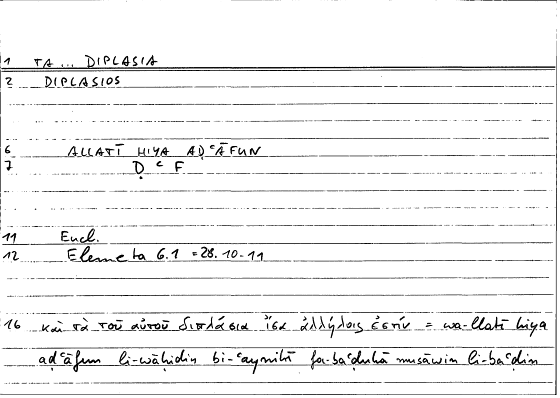 1 TA ... DIPLASIA
2 DIPLASIOS
6 ALLATĪ HIYA AḌʿĀFUN
7 Ḍ ʿ F
11 Eucl.
12 Elementa 6.1 = 28.10-11
16 καὶ τὰ τοῦ αὐτοῦ διπλάσια ἴσα ἀλλήλοις ἐστίν = wa-llatī hiya
aḍʿāfun li-wāḥidin bi-ʿaynihī fa-baʿḍuhā musāwin li-baʿḍin